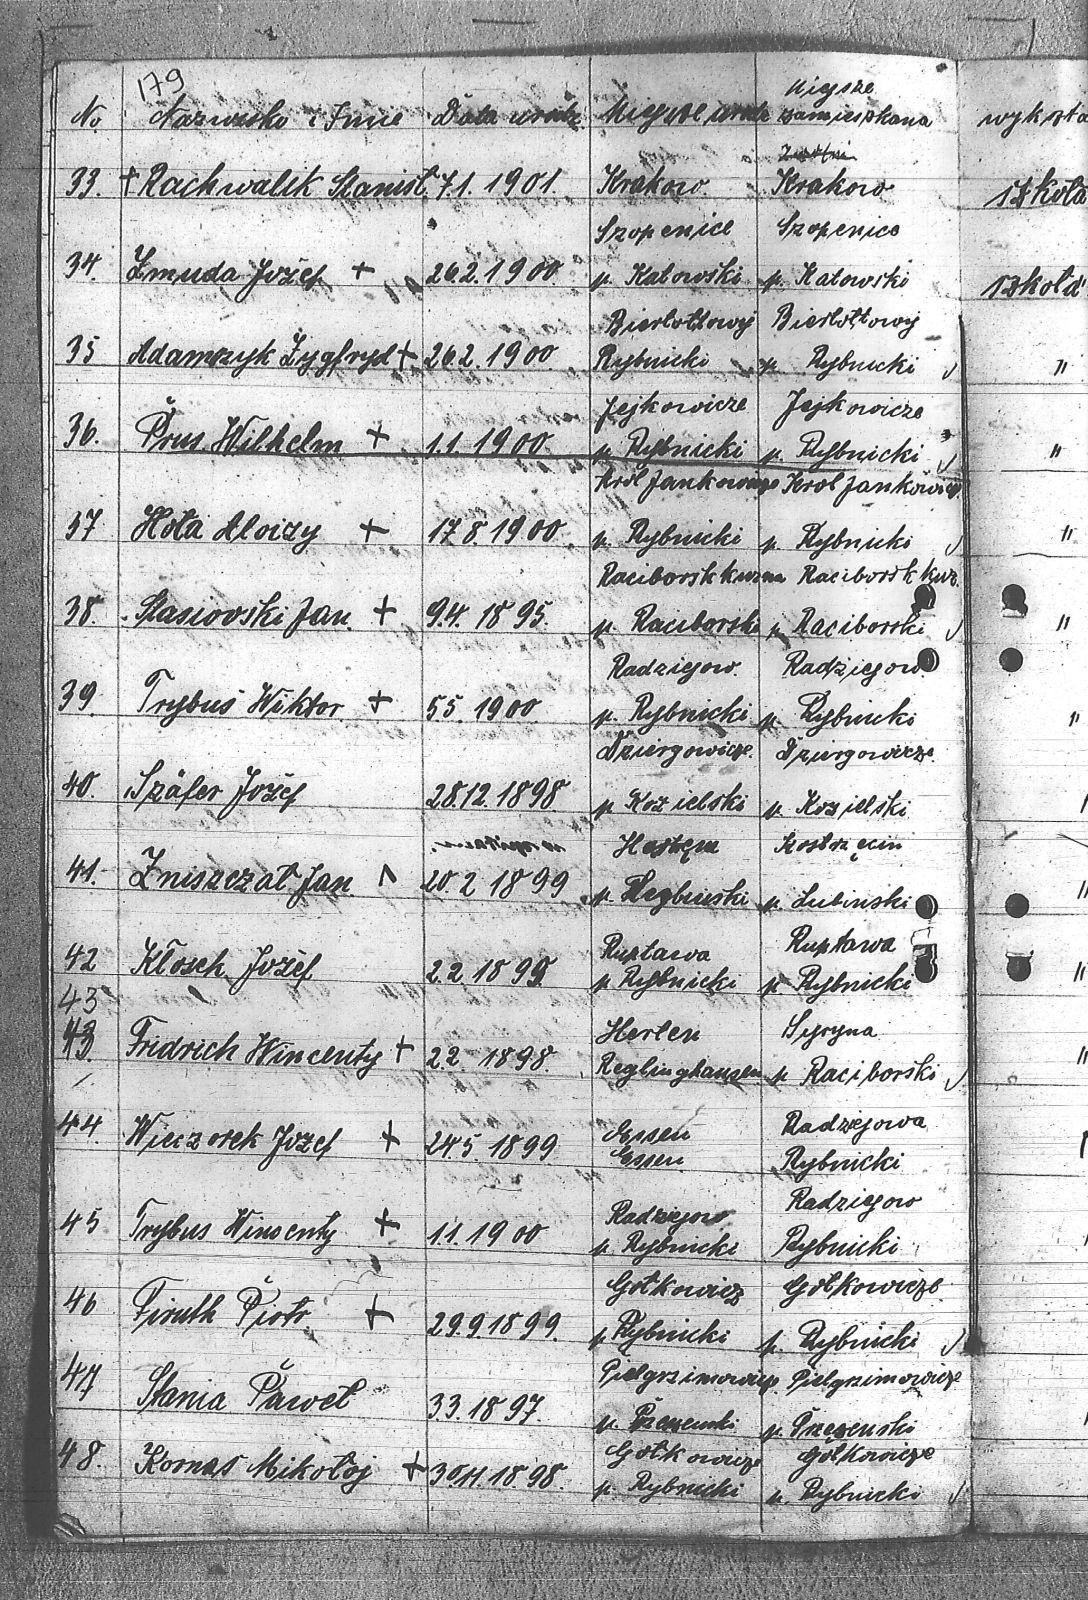 179
No. Nazwisko i Imie Data urodz Miejsce urodz Miejsze zamieszkana wykszta
33. + Rachwalik Stanisł. 7.1. 1901. Krakow. Krakow szkoła
Szopenice Szopenice
34. Żmuda Jožef + 26.2. 1900. p. Katowski p. Katowski szkoła
Biertołtowy Biertołtowy
35 Adamczyk Zygfryd + 26.2. 1900. Rybnicki p. Rybnicki "
Jejkowicze Jejkowicze
36. Prus. Wilhelm + 1.1. 1900. p. Rybnicki p. Rybnicki "
Krol Jankowicze Krol Jankowicze
37 Hota Aloizy + 17.8. 1900 p. Rybnicki p. Rybnicki "
Raciborsk Raciborsk
38. Stasiovski Jan. + 9.4. 1895. p. Raciborski p. Raciborski "
Radziejow. Radziejow
39. Trybuś Wiktor. + 5.5. 1900. p. Rybnicki p. Rybnicki "
Dziergowicze. Dziergowicze.
40. Szäfer Jožef 28.12. 1898. p. Kozielski p. Kozielski
Kostrzecin
41. Zniszczał Jan. 20.2 1899 p. Lubinski
Ruptawa Ruptawa
42 Kłosek Jožef 2.2. 1899. p. Rybnicki p. Rybnicki "
43
Herten Syryna
43. Fridrich Wincenty + 2.2. 1898. Reglinghausen p. Raciborski "
Essen Radziejowa
44. Wieczorek Jozef + 24.5. 1899. Essen Rybnicki
Radziejow Radziejow
45 Trybus Wincenty + 1.1. 1900 p. Rybnicki Rybnicki
Gołkowicz Gołkowicze
46 Piruth Piotr + 29.9. 1899 p. Rybnicki p. Rybnicki
Pielgrzimowicze. Pielgrzimowicze
47 Stania Paweł 3.3. 1897. p. Pszczenski p. Pszczenski
Gołkowicze Gołkowicze
48. Kornas Mikołoj + 30.11. 1898. p. Rybnicki p. Rybnicki